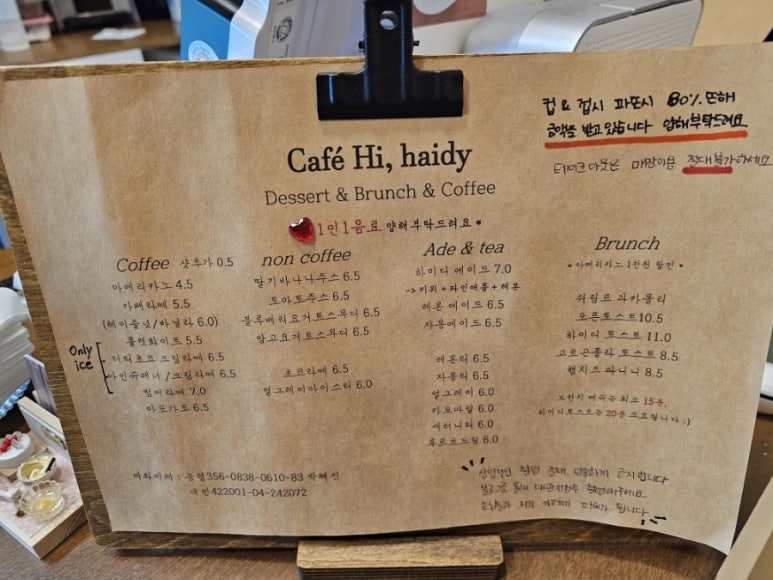 컵 & 접시 파또시 80% 또해
금액을 받고 있습니다 양해부탁드려요
테이크아웃은 매장이용 절대불가하세요
Café Hi, haidy
Dessert & Brunch & Coffee
1인1음료 양해부탁드려요 *
Coffee 샷추가 0.5
아메리카노 4.5
카페라떼 5.5
(헤이즐넛/바닐라 6.0)
플랫화이트 5.5
Only ice
더티초코 크림라떼 6.5
아인슈페너 /크림라떼 6.5
씸어라떼 7.0
아포가토 6.5
non coffee
딸기바나나주스 6.5
토마토주스 6.5
블루베리요거트스무디 6.5
망고요거트스무디 6.5
초코라떼 6.5
얼그레이아이스티 6.0
Ade & tea
하이디 에이드 7.0
-> 키위 + 파인애플 + 레몬
레몬 에이드 6.5
자몽에이드 6.5
레몬티 6.5
자몽티 6.5
얼그레이 6.0
카모마일 6.0
세러니티 6.0
후르츠드림 6.0
Brunch
* 아메리카노 1천원 할인 *
쉬림프 과카몰리
오픈토스트10.5
하이디 토스트 11.0
고르곤졸라 토스트 8.5
햄치즈 파니니 8.5
브런치 메뉴는 최소 15분,
하이디토스트는 20분 소요됩니다 :)
계좌이체 : 농협356-0838-0610-83 박혜진
국민422001-04-242072
상업적인 촬영 절대, 단호하게 금지합니다